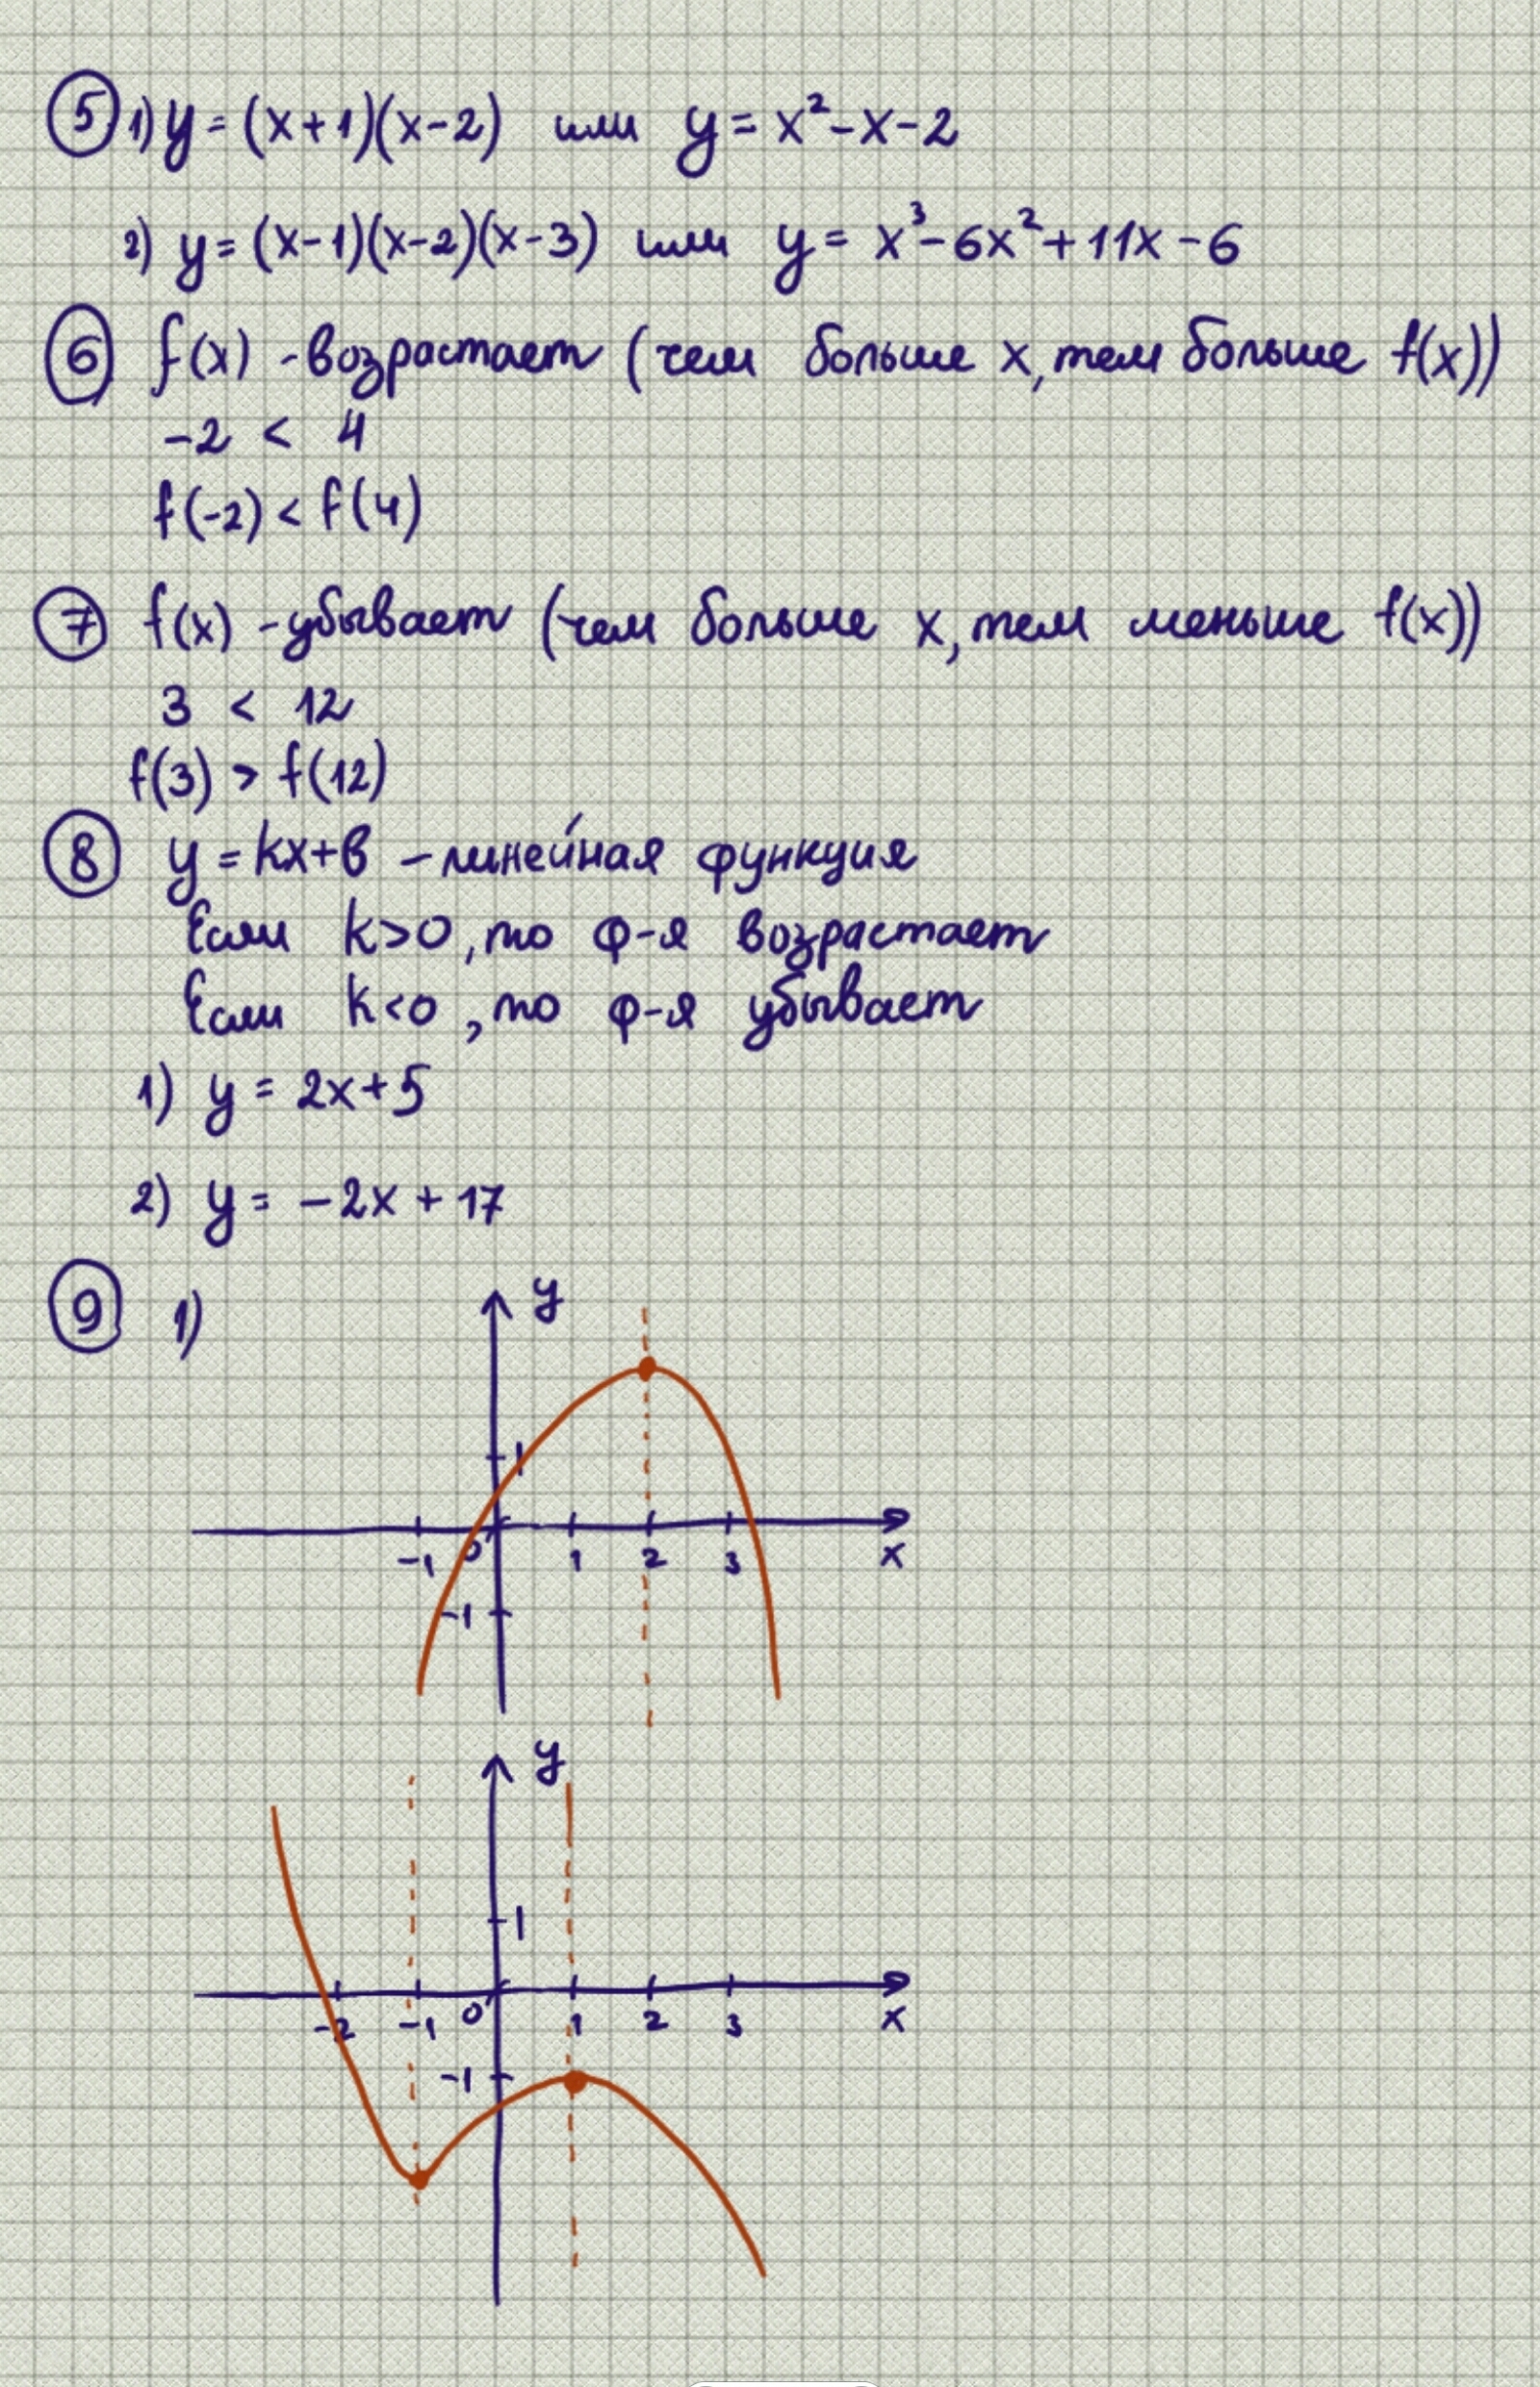 5 1) y = (x+1)(x-2) или y = x²-x-2
2) y = (x-1)(x-2)(x-3) или y = x³-6x²+11x-6
6 f(x) - возрастает (чем больше x, тем больше f(x))
-2 < 4
f(-2) < f(4)
7 f(x) - убывает (чем больше x, тем меньше f(x))
3 < 12
f(3) > f(12)
8 y = kx+в - линейная функция
Если k>0, то ф-я возрастает
Если k<0, то ф-я убывает
1) y = 2x+5
2) y = -2x+17
9 1)
y
1
-1 0 1 2 3 x
-1
y
1
-2 -1 0 1 2 3 x
-1